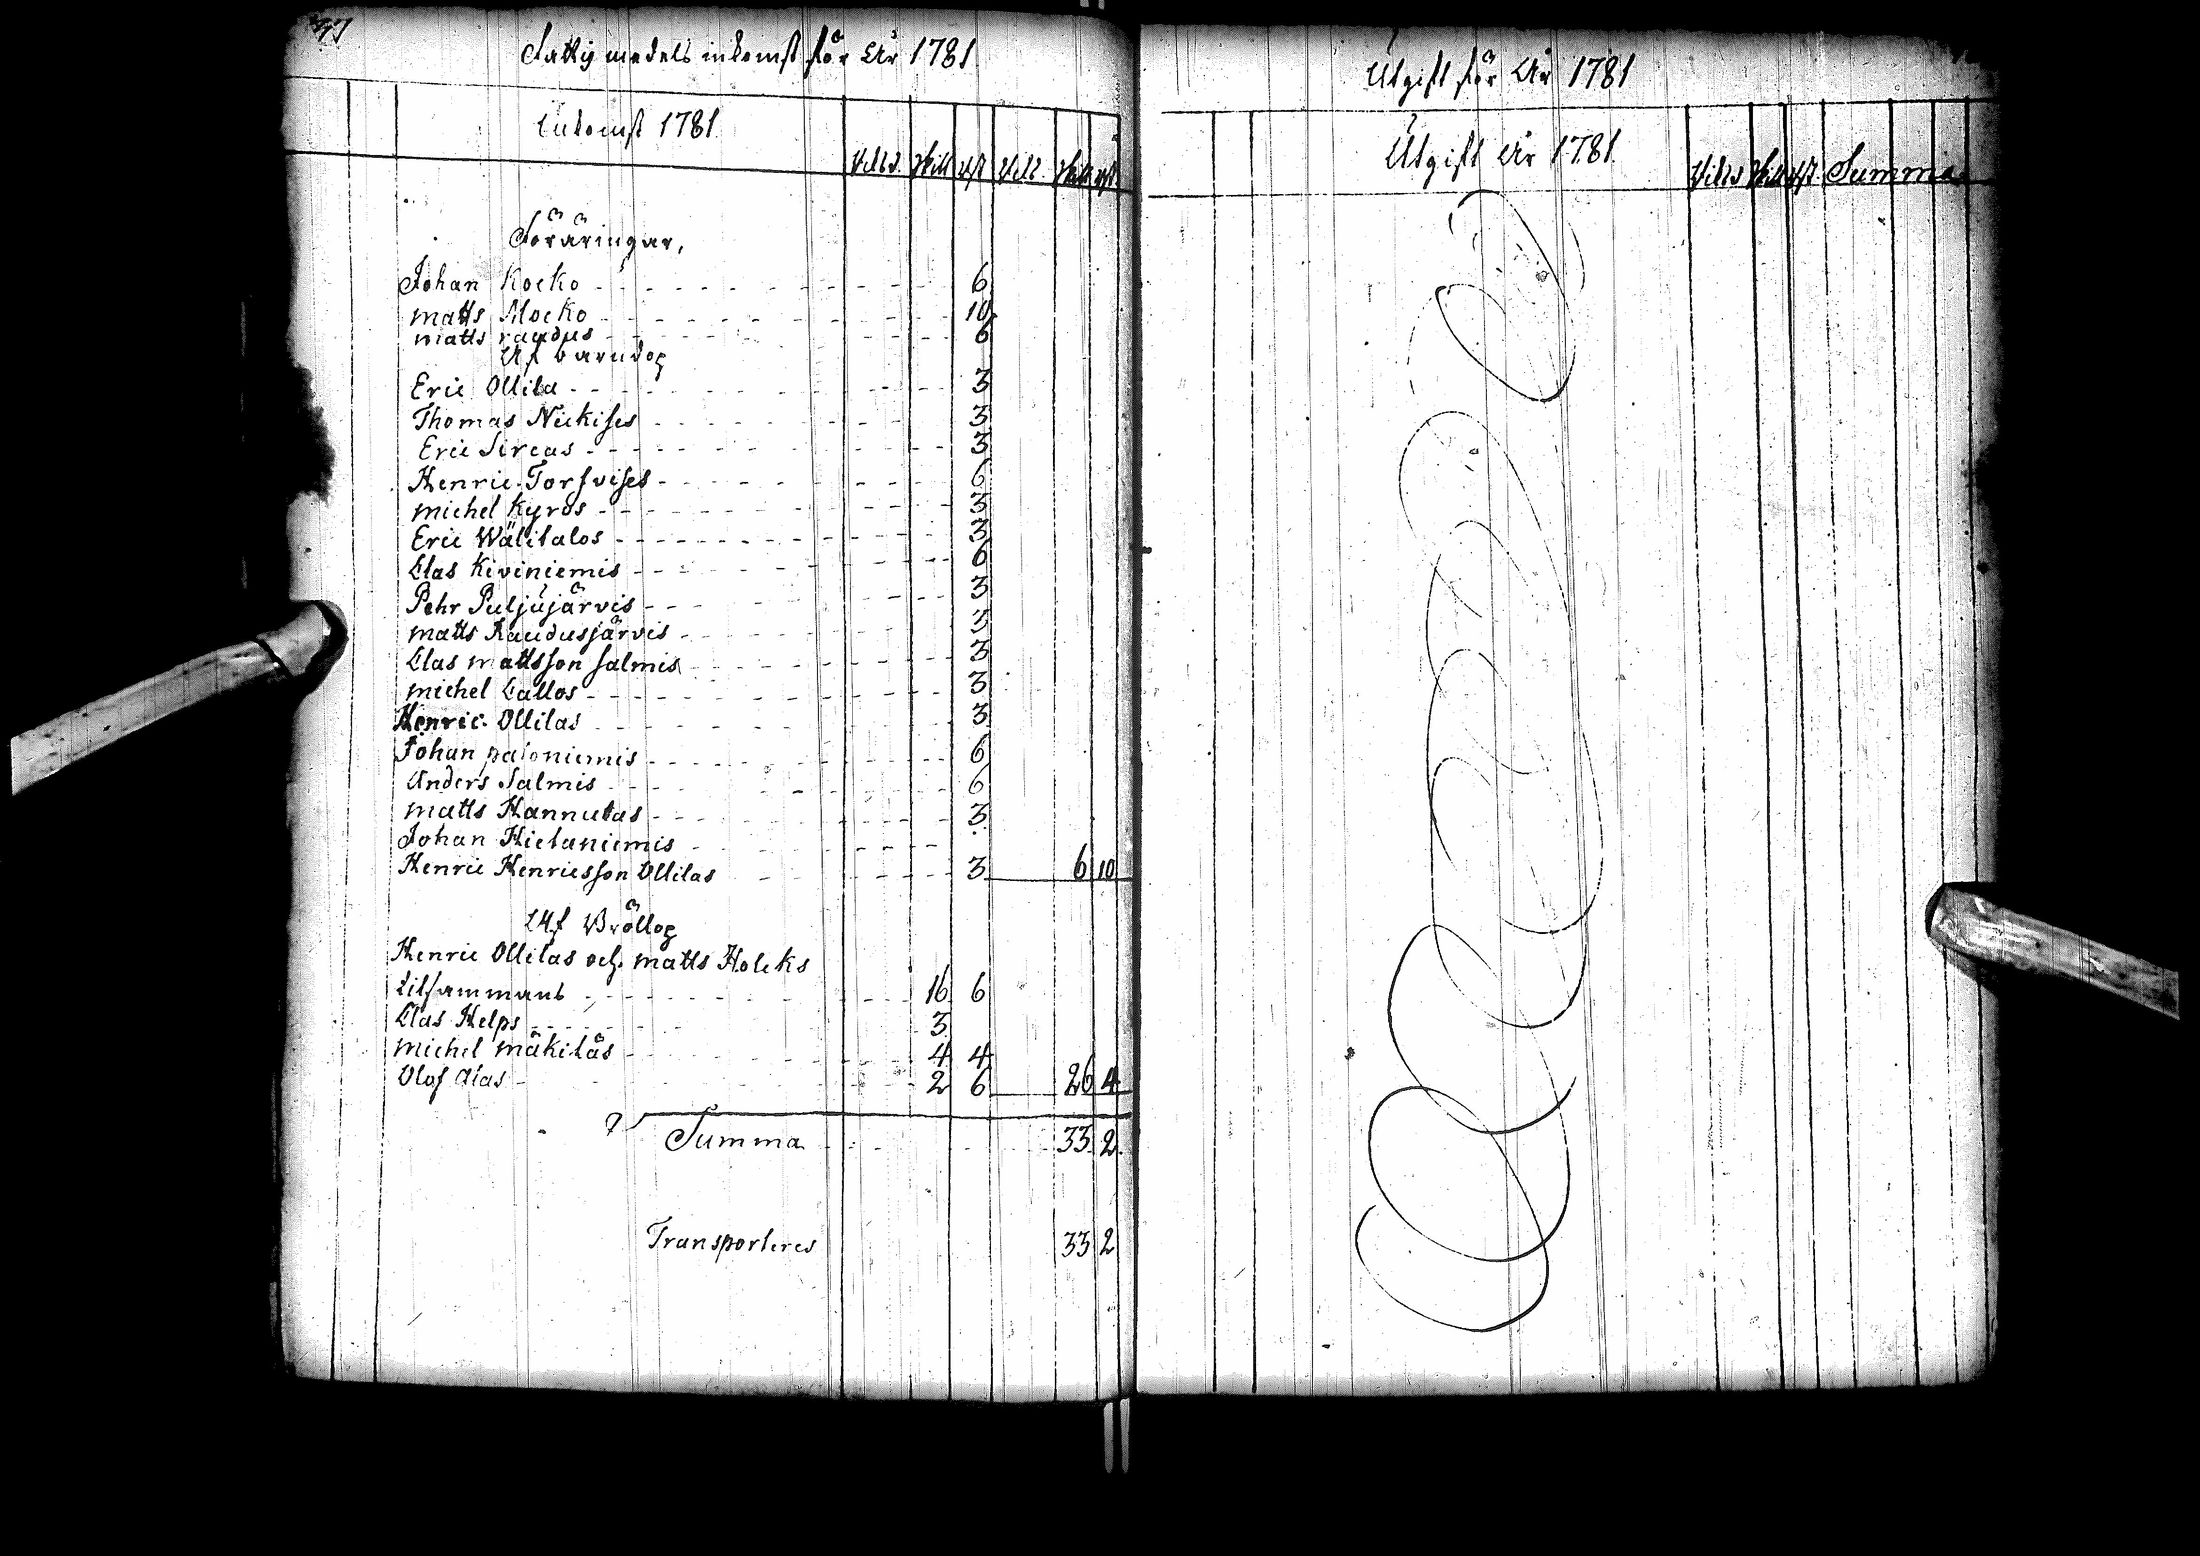 Fattig medels inkomst för År 1781
Inkomst 1781
Rikd. Skill rst Rikd. Skill rst
Föräringar,
Johan Kocko 6
matts Mocko 10
matts raudus 6
Af barndop
Eric Ollila 3
Thomas Neckises 3
Eric Sircas 3
Henric Torfvises 6
michel Kyrös 3
Eric Wälitalos 3
Clas Kiviniemis 6
Pehr Puljujärvis 3
matts Raudusjärvis 3
Clas mattsson Salmis 3
michel Lallos 3
Henric Ollilas 3
Johan paloniemis 6
Anders Salmis 6
matts Hannukas 3
Johan Hietaniemis
Henric Henricsson Ollilas 3 6 10
Af Bröllop
Henric Ollilas och matts Holcks
tilsammans 16 6
Clas Helps 3
michel mäkiläs 4 4
Olof Alas 2 6 26 4
Summa 33 2
Transporteres 33 2
Utgift för År 1781
Utgift År 1781
Rikd Skill rst Summa